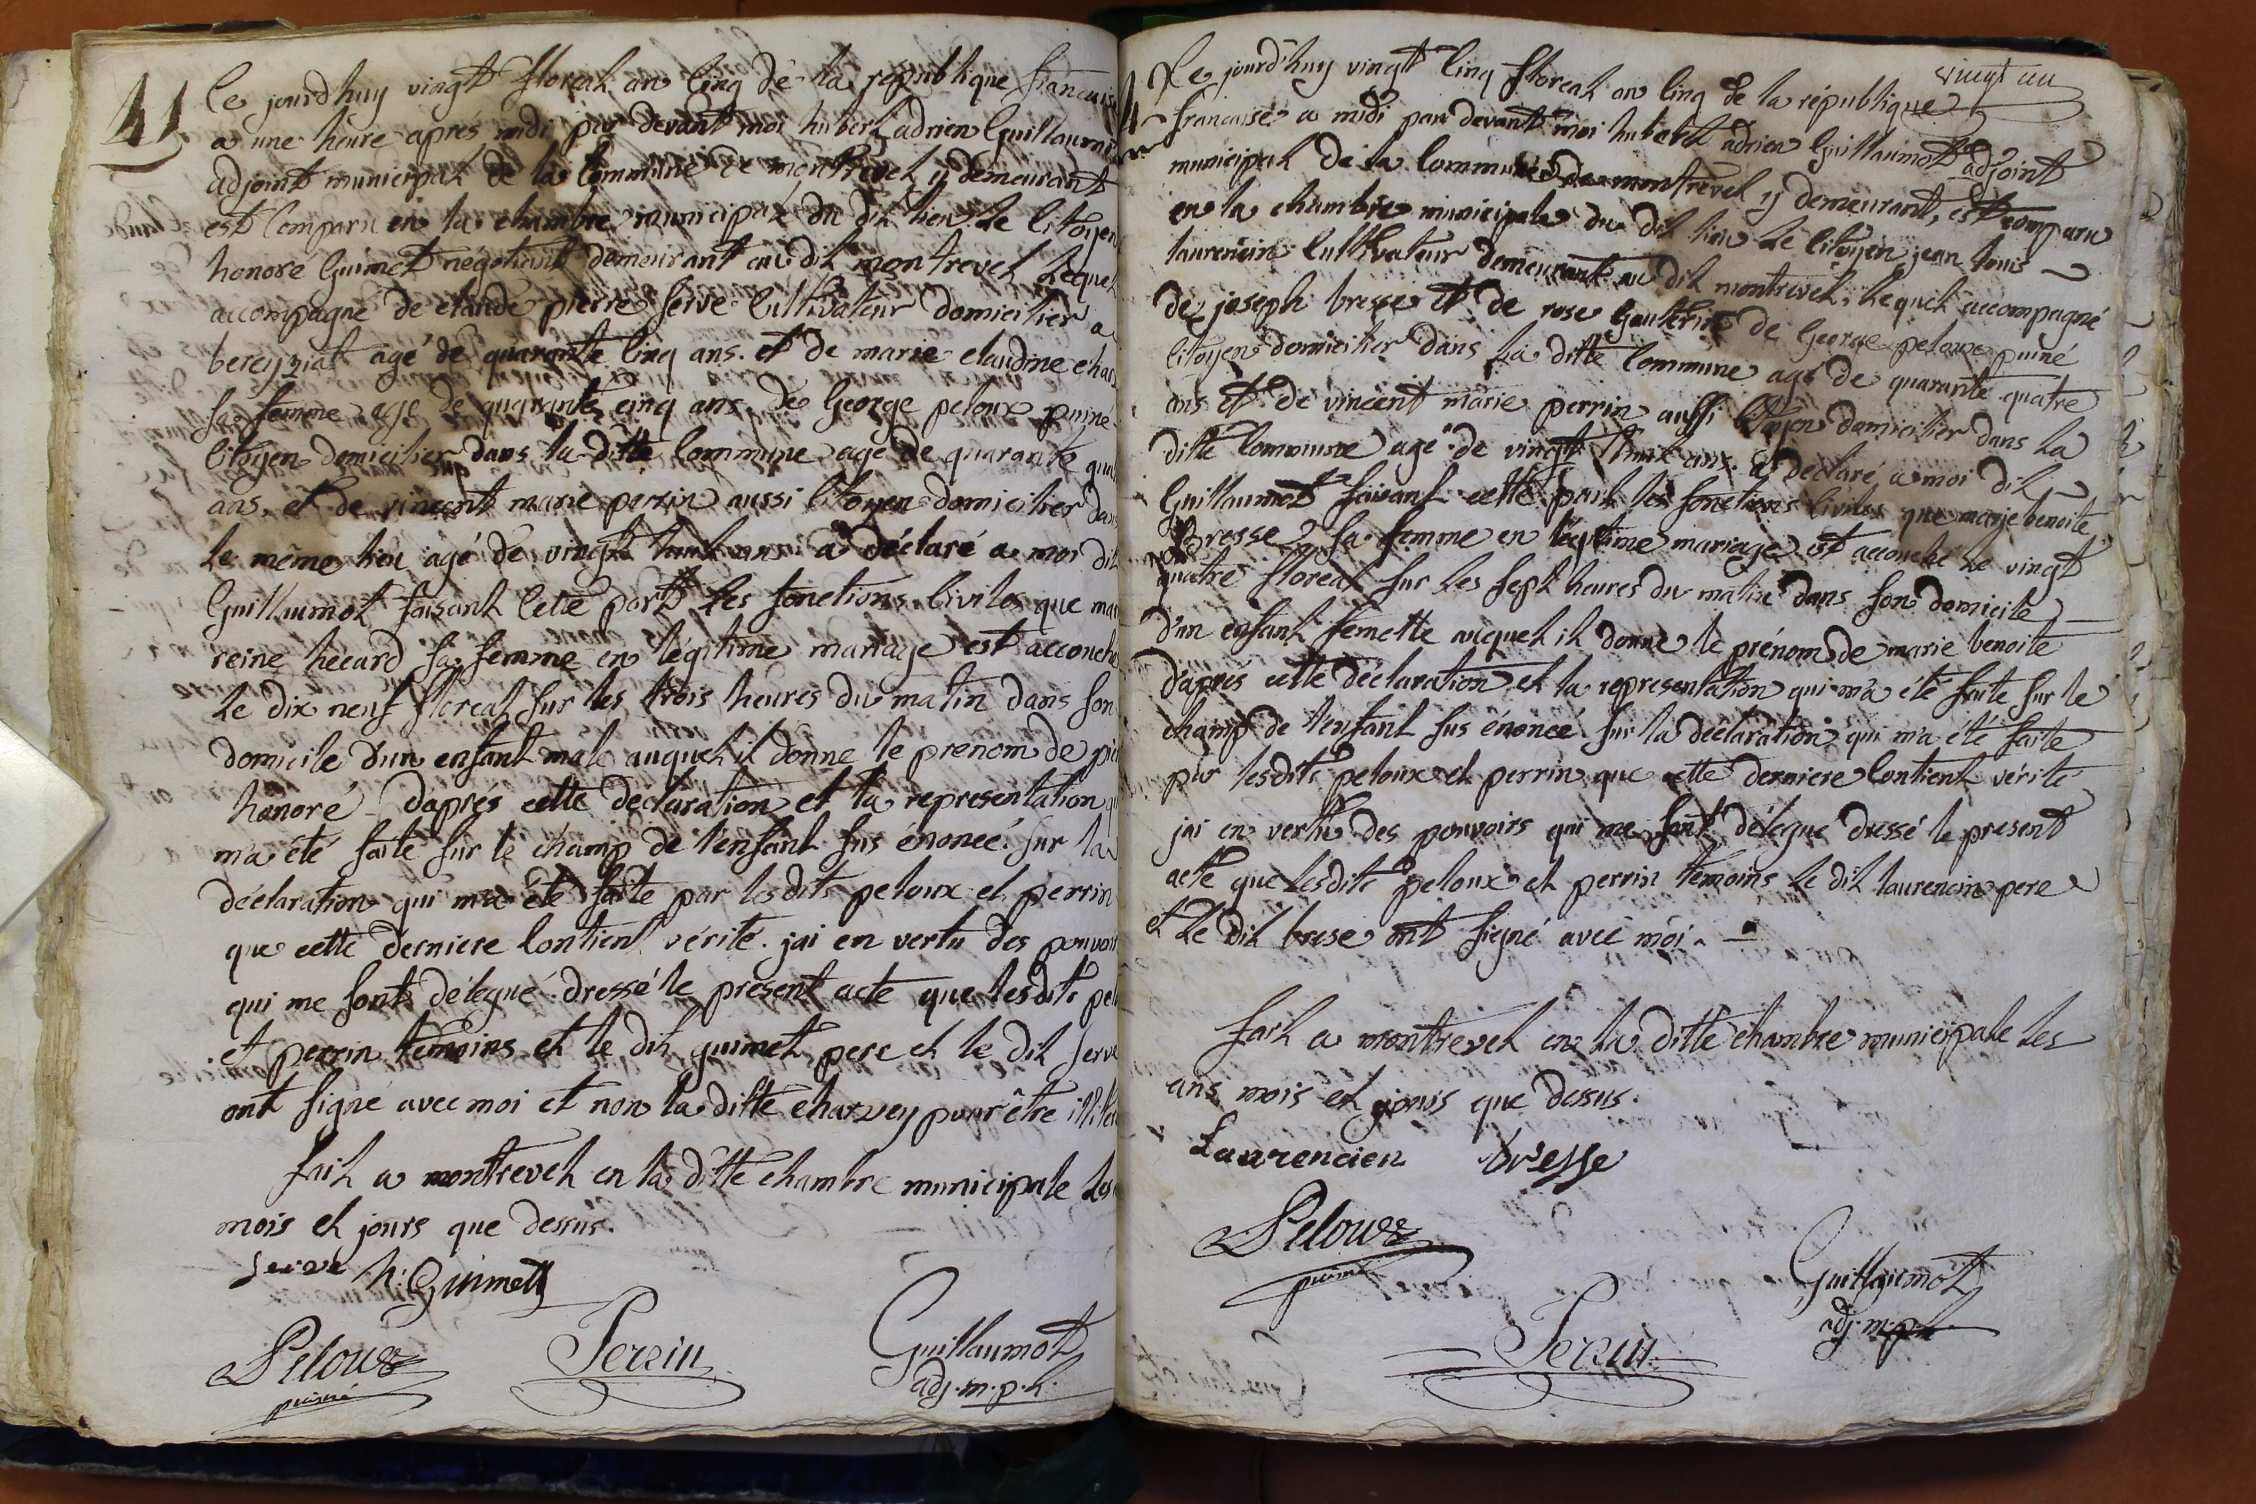 41
Ce jourd'huy vingt floreal an cinq de la republique francaise
a une heure aprés midi par devant moi hubert adrien Guillaumot
adjoint municipal de la Commune de montrevel y demeurant
est Comparu en la chambre municipale du dit lieu Le Citoyen
honoré Guimet négotiant demeurant au dit montrevel lequel
accompagné de claude pierre Serve Cultivateur domicilier a
bereyziat agé de quarante Cinq ans. et de marie claudine char
sa femme agé de quarante cinq ans de George peloux puiné
Citoyen domicilier dans la ditte Commune agé de quarante qua
ans, et de vincent marie perrin aussi Citoyen domicilier dans
le même lieu agé de vingt huit ans a déclaré a moi dit
Guillaumot faisant Cette part les fonctions Civiles que mar
reine hecard sa femme en légitime mariage est accouché
le dix neuf floreal sur les trois heures du matin dans son
domicile d'un enfant male auquel il donne le prenom de pie
honoré - daprés cette declaration et la representation q
m'a été faite sur le champ de l'enfant sus énoncé. sur la
déclaration qui m'a été faite par lesdits peloux et perrin
que cette derniere Contient vérité. jai en vertu des pouvoir
qui me sont délegué dressé le present acte que lesdits pel
et perrin témoins et le dit guimet pere et le dit serve
ont signé avec moi et non la ditte charvey pour être illite
fait a montrevel en la ditte chambre municipale les
mois et jours que dessus.
Serve h: Guimet
Peloux puiné
Perrin
Guillaumot adj. m.p.l.
vingt un
Ce jourd'huy vingt Cinq floreal an Cinq de la république
francaise a midi par devant moi hubert adrien Guillaumot adjoint
municipal de la Commune de montrevel y demeurant, est comparu
en la chambre municipale du dit lieu le Citoyen jean louis
laurencin Cultivateur demeurant au dit montrevel, lequel accompagné
de joseph bresse et de rose Gauterin de George peloux puiné
Citoyen domicilier dans la ditte Commune agé de quarante quatre
ans et de vincent marie perrin aussi Citoyen domicilier dans la
ditte Commune agé de vingt huit ans. a déclaré a moi dit
Guillaumot faisant cette part les fonctions Civiles que marie benoite
Bresse sa femme en légitime mariage est accouché le vingt
quatre floreal sur les sept heures du matin dans son domicile
d'un enfant femelle auquel il donne le prénom de marie benoite
d'aprés cette déclaration et la representation qui m'a été faite sur le
champ de l'enfant sus énoncé. sur la déclaration qui m'a été faite
par lesdits peloux et perrin que cette derniere Contient vérité
jai en vertu des pouvoirs qui me sont délegué dressé le present
acte que lesdits peloux et perrin témoins le dit laurencin pere
et le dit brese ont signé avec moi.
fait a montrevel en la ditte chambre municipale les
ans mois et jours que dessus.
Laurencien bresse
Peloux puiné
Perrin
Guillaumot adj. m.p.l.